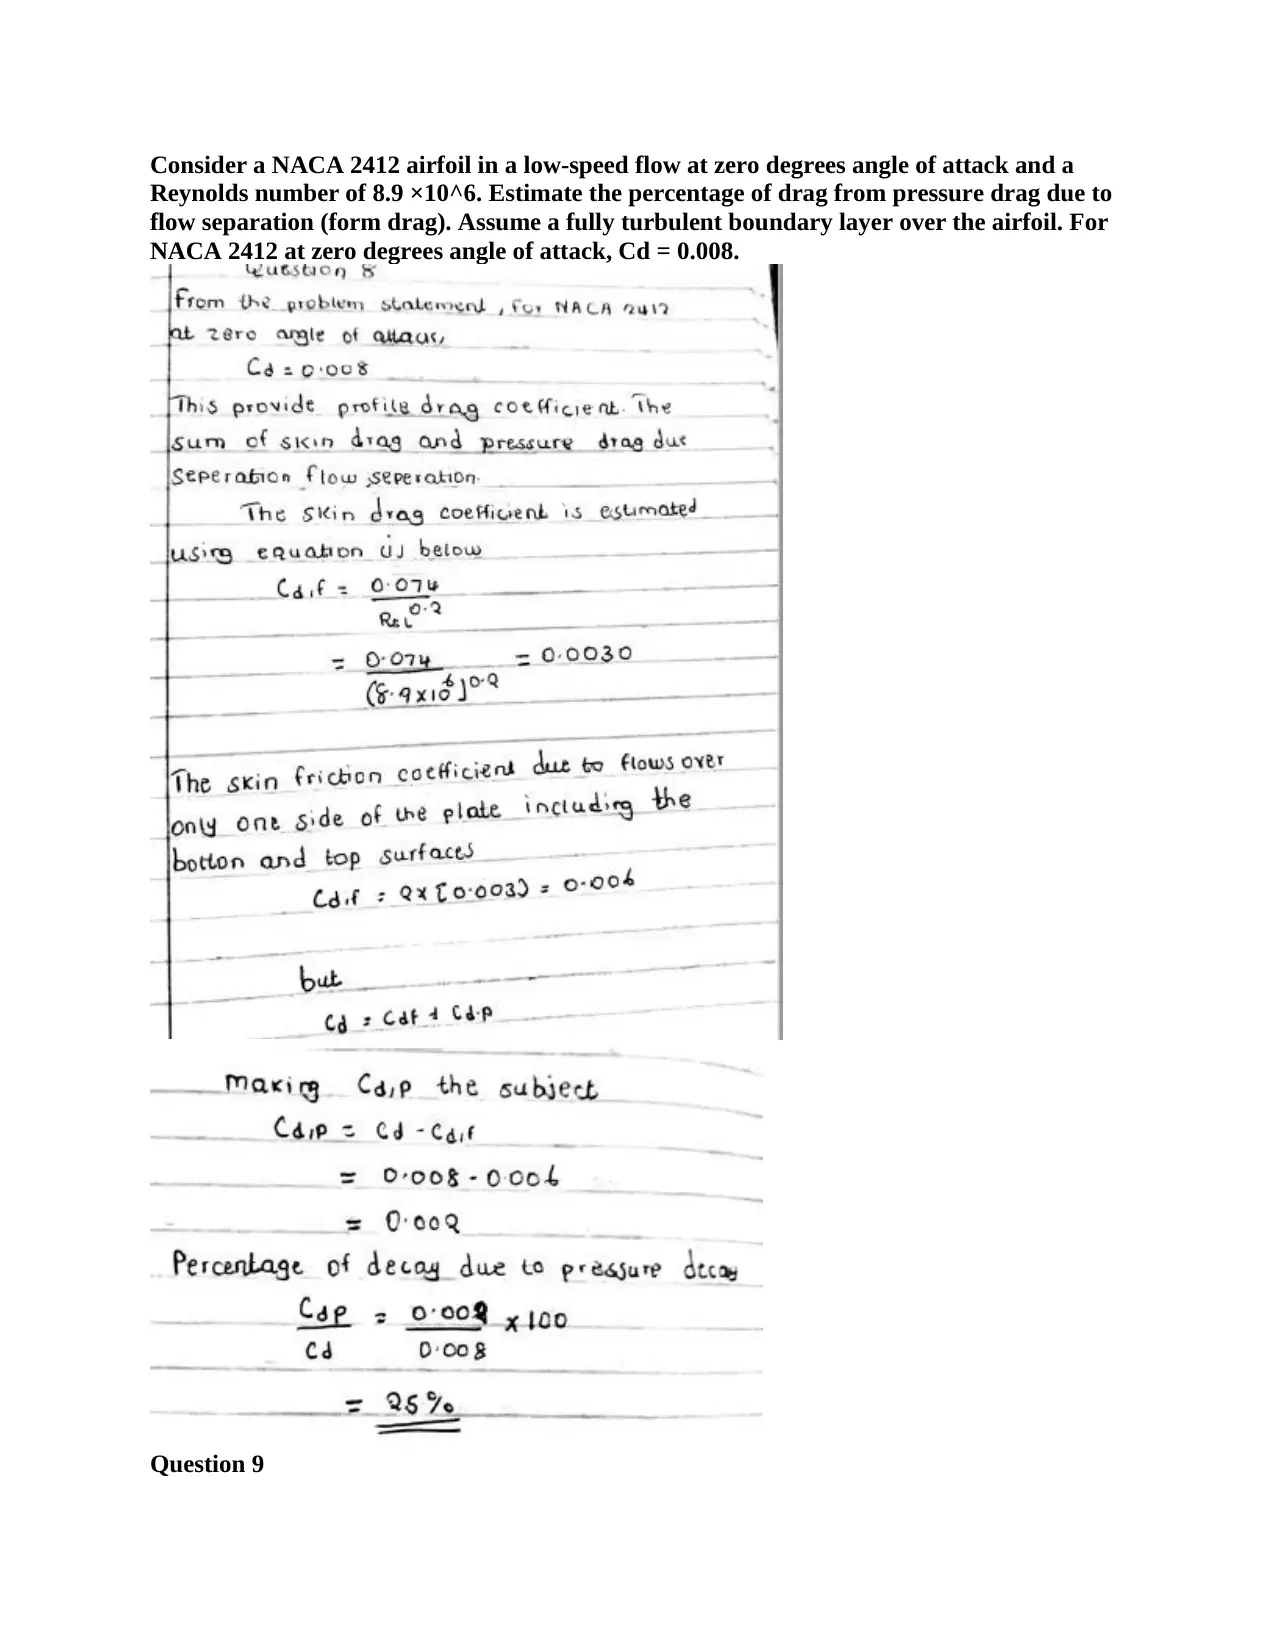 Consider a NACA 2412 airfoil in a low-speed flow at zero degrees angle of attack and a
Reynolds number of 8.9 ×10^6. Estimate the percentage of drag from pressure drag due to
flow separation (form drag). Assume a fully turbulent boundary layer over the airfoil. For
NACA 2412 at zero degrees angle of attack, Cd = 0.008.
Question 8
From the problem statement, for NACA 2412
at zero angle of attack,
Cd = 0.008
This provide profile drag coefficient. The
sum of skin drag and pressure drag due
seperation flow seperation.
The skin drag coefficient is estimated
using equation (i) below
Cd,f = 0.074
ReL^0.2
= 0.074 = 0.0030
(8.9x10^6)^0.2
The skin friction coefficient due to flows over
only one side of the plate including the
botton and top surfaces
Cd,f = 2x(0.003) = 0.006
but
Cd = Cdf + Cd.p
Making Cd,p the subject
Cd,p = Cd - Cd,f
= 0.008 - 0.006
= 0.002
Percentage of decay due to pressure decay
Cdp = 0.002 x 100
Cd 0.008
= 25%
Question 9